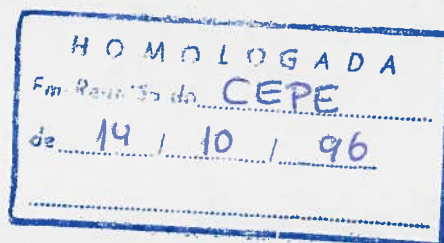 HOMOLOGADA
Em Reunião do CEPE
de 14 / 10 / 96